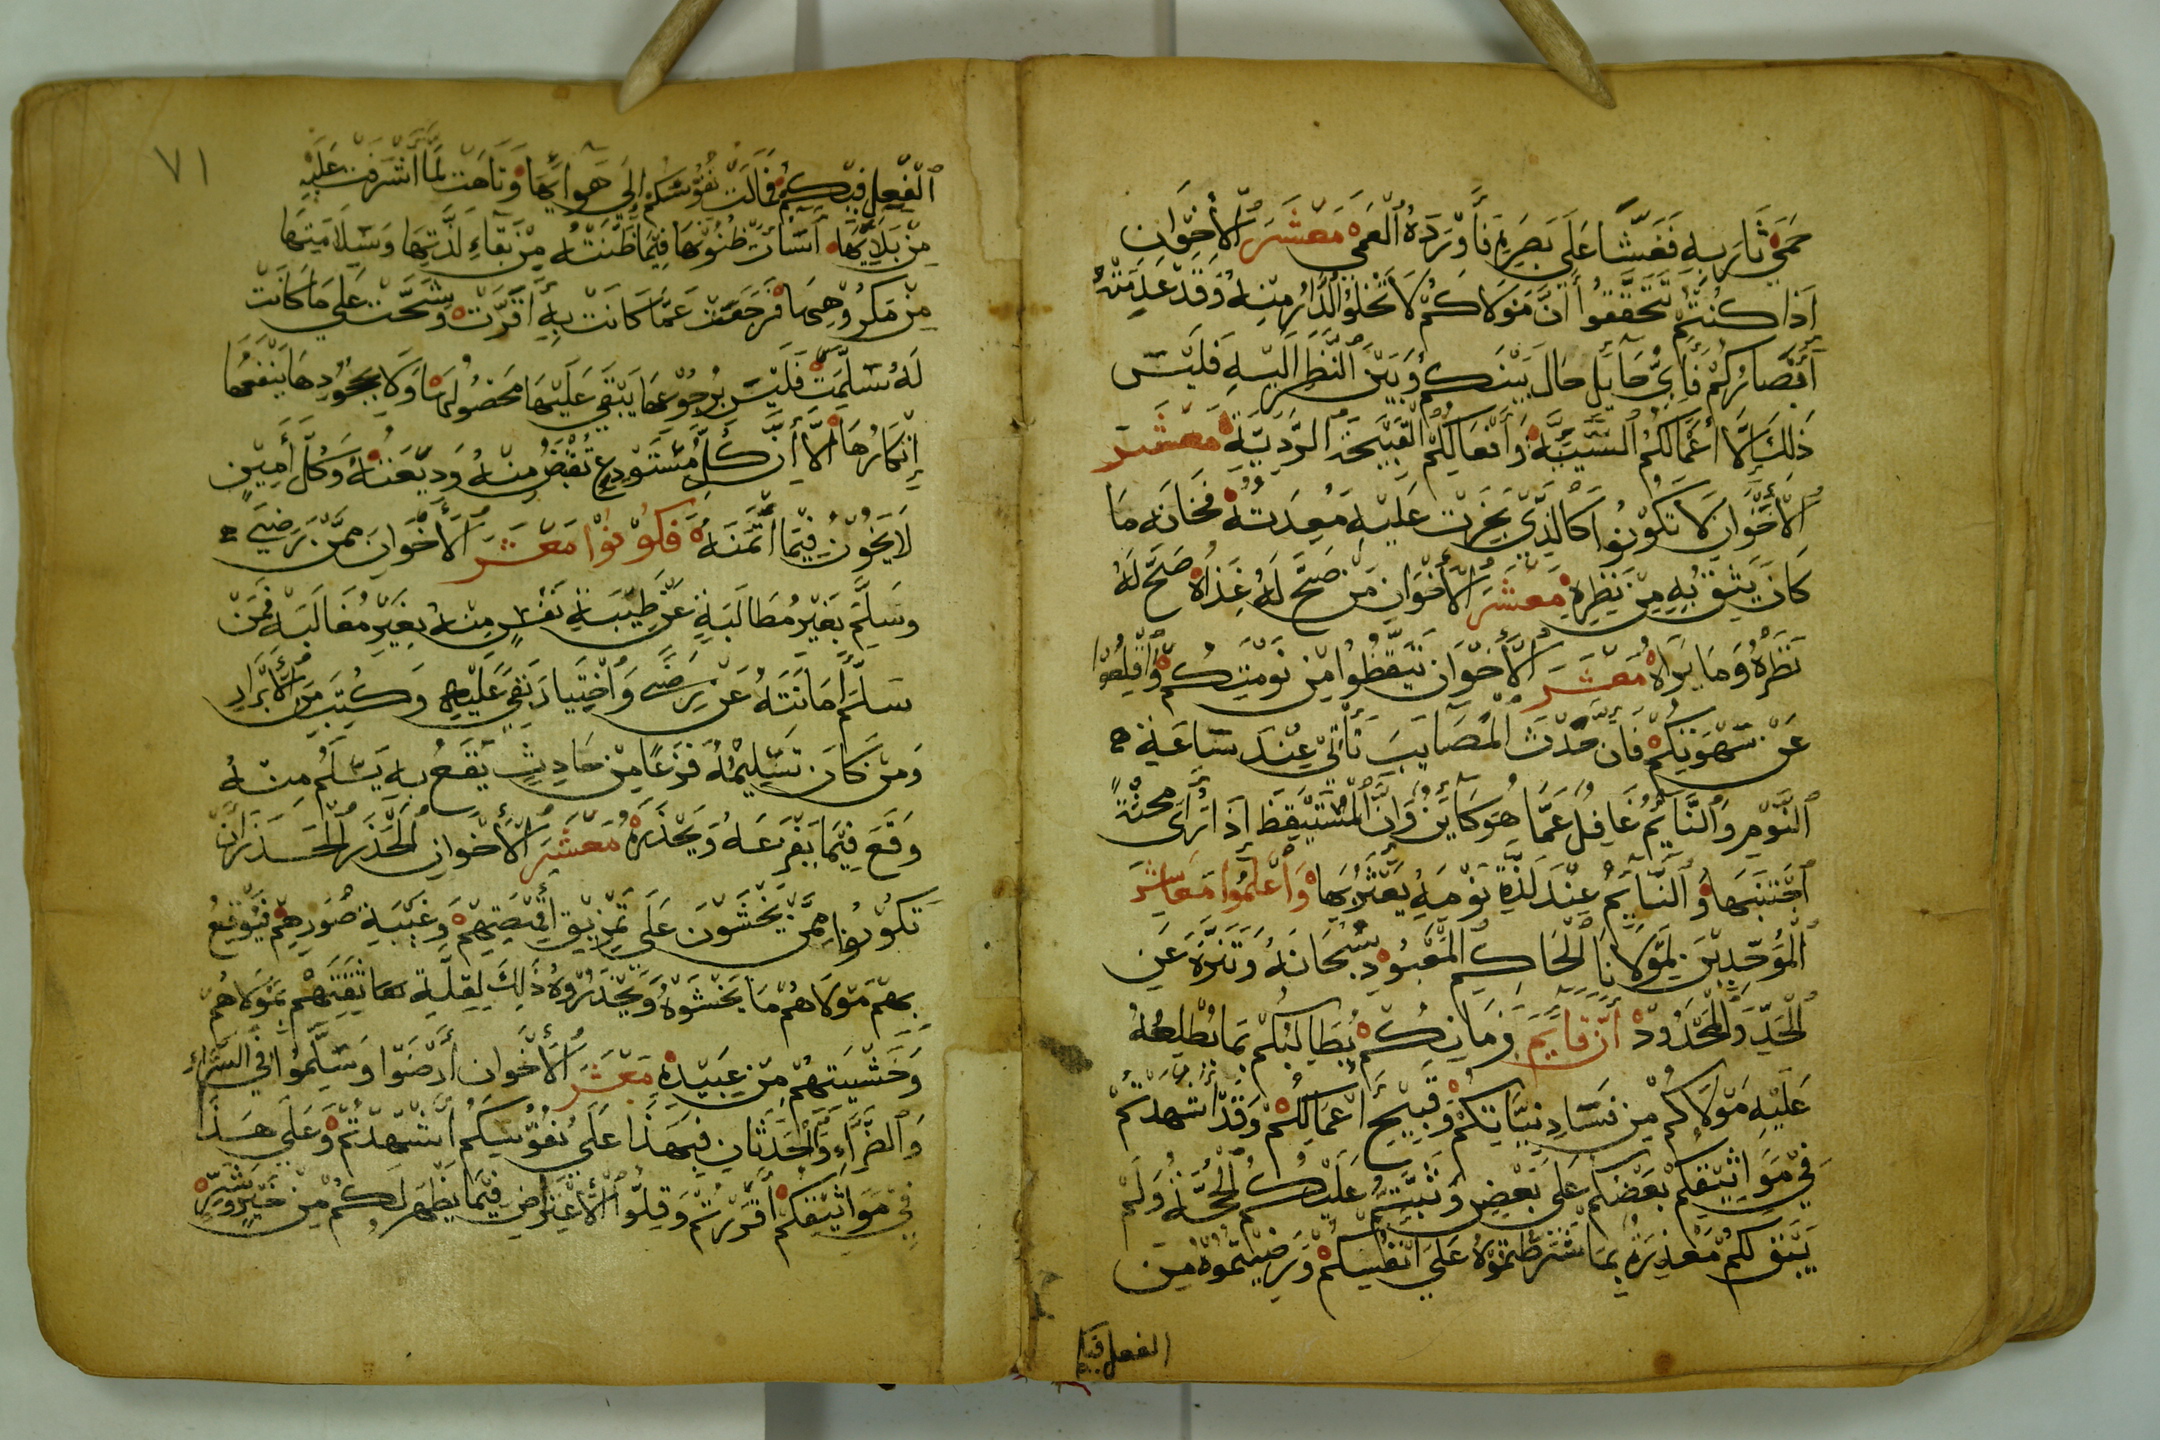 حَمَيْ ثَارَ بِهِ فَغَشَّا عَلَي بَصَرِهِ فَأَوْرَدَهُ ٱلْعَمَي مَعْشَرَ ٱلْأَخْوَانِ
إِذَا كُنْتُمْ تَتَحَقَّقُوا أَنَّ مَوْلَاكُمْ لَا تَخْلُوا ٱلدَّارُ مِنْهُ وَقَدْ عَدِمَتْهُ
أَبْصَارُكُمْ فَأَيُّ حَايِلٍ حَالَ بَيْنَكُمْ وَبَيْنَ ٱلنَّظَرِ إِلَيْهِ فَلَيْسَ
ذَلِكَ إِلَّا أَعْمَالَكُمُ ٱلسَّيِّئَةَ وَأَفْعَالَكُمُ ٱلْقَبِيْحَةَ ٱلرَّدِيَّةَ مَعْشَرَ
ٱلْأَخْوَانِ لَا تَكُوْنُوا كَالَّذِيْ بَخِرَتْ عَلَيْهِ مَعِدَتُهُ فَخَانَهُ مَا
كَانَ يَثِقُ بِهِ مِنْ نَظَرِهِ مَعْشَرَ ٱلْأَخْوَانِ مَنْ صَحَّ لَهُ غِذَاهُ صَحَّ لَهُ
نَظَرُهُ وَمَا يَرَاهُ مَعْشَرَ ٱلْأَخْوَانِ تَيَقَّظُوا مِنْ نَوْمَتِكُمْ وَٱقْلِعُوا
عَنْ سَهْوَتِكُمْ فَإِنَّ حَدَثَ ٱلْمَصَايِبَ تَأْتِيْ عِنْدَ سَاعَةِ
ٱلنَّوْمِ وَٱلنَّايِمُ غَافِلٌ عَمَّا هُوَ كَايِنٌ وَإِنَّ ٱلْمُسْتَيْقِظَ إِذَا رَأَى مِحْنَةً
ٱجْتَنَبَهَا وَٱلنَّايِمُ عِنْدَ لَذَّةِ نَوْمِهِ يَعْثُرُ بِهَا وَٱعْلَمُوا مَعَاشِرَ
ٱلْمُوَحِّدِيْنَ لِمَوْلَانَا ٱلْحَاكِمِ ٱلْمَعْبُوْدِ سُبْحَانَهُ وَتَنَزَّهَ عَنِ
ٱلْحَدِّ وَٱلْمَحْدُوْدْ أَنَّ قَايِمَ زَمَانِكُمْ يُطَالِبُكُمْ بِمَا يُطْلِعُهُ
عَلَيْهِ مَوْلَاكُمْ مِنْ فَسَادِ نِيَّاتِكُمْ وَقَبِيْحِ أَعْمَالِكُمْ وَقَدْ أَشْهَدْتُمْ
فِيْ مَوَاثِيْقِكُمْ بَعْضَكُمْ عَلَي بَعْضٍ وَثَبَتَتْ عَلَيْكُمُ ٱلْحُجَّةُ وَلَمْ
يَبْقَ لَكُمْ مَعْذِرَةٌ بِمَا شَرَطْتُمُوْهُ عَلَي أَنْفُسِكُمْ وَرَضِيْتُمُوْهُ مِنَ
الفعل فيكم
٧١
ٱلْفِعْلِ فِيْكُمْ فَمَالَتْ نُفُوْسُكُمْ إِلَي هَوَائِهَا وَتَاهَتْ لَمَّا أَشْرَفَتْ عَلَيْهِ
مِنْ بَلَائِهَا أَسَأَتْ ظُنُوْنَهَا فِيْمَا ظَنَنَتْهُ مِنْ بَقَاءِ لَذَّتِهَا وَسَلَامَتِهَا
مِنْ مَكْرُوْهِهَا فَرَجَعَتْ عَمَّا كَانَتْ بِهِ أَقَرَّتْ وَشَحَّتْ عَلَي مَا كَانَتْ
لَهُ سَلَّمَتْ فَلَيْسَ بِرُجُوْعِهَا يَبْقَي عَلَيْهَا مَحْصُوْلُهَا وَلَا بِجُحُوْدِهَا يَنْفَعُهَا
إِنْكَارُهَا إِلَّا أَنَّ كُلَّ مُسْتَوْدِعٍ تُقْبَضُ مِنْهُ وَدِيْعَتُهُ وَكُلَّ أَمِيْنٍ
لَا يَخُوْنُ فِيْمَا ٱئْتَمَنَهُ فَكُوْنُوْا مَعْشَرَ ٱلْأَخْوَانِ مِمَّنْ رَضِيَ
وَسَلَّمَ بِغَيْرِ مُطَالَبَةٍ عَنْ طِيْبَةِ نَفْسٍ مِنْهُ بِغَيْرِ مُغَالَبَةٍ فَمَنْ
سَلَّمَ أَمَانَتَهُ عَنْ رِضَي وَٱخْتِيَارٍ بَقِيَ عَلَيْهِ وَكُتِبَ مِنَ ٱلْأَبْرَارِ
وَمَنْ كَانَ تَسْلِيْمُهُ فَزَعًا مِنْ حَادِثٍ يَقَعُ بِهِ يَسْلَمُ مِنْهُ
وَقَعَ فِيْمَا يَفْزَعُهُ وَيَحْذَرُهُ مَعْشَرَ ٱلْأَخْوَانِ ٱلْحَذَرَ ٱلْحَذَرَ أَنْ
تَكُوْنُوا مِمَّنْ يَخْشَوْنَ عَلَي تَمْزِيْقِ أَقْمِصَتِهِمْ وَغَيْبَةِ صُوَرِهِمْ فَيُوْقِعُ
بِهِمْ مَوْلَاهُمْ مَا يَخْشَوْهُ وَيَحْذَرُوْهُ ذَلِكَ لِقِلَّةِ ثِقَتِهِمْ بِمَوْلَاهُمْ
وَخَشْيَتِهِمْ مِنْ عَبِيْدِهِ مَعْشَرَ ٱلْأَخْوَانِ أَرْضَوْا وَسَلِّمُوا فِي السَّرَّاءِ
وَٱلضَّرَّاءِ وَٱلْحَدَثَانِ فَبِهَذَا عَلَي نُفُوْسِكُمْ أَشْهَدْتُمْ وَعَلَي هَذَا
فِيْ مَوَاثِيْقِكُمْ أَقْرَرْتُمْ وَقِلُّوا ٱلْأَعْتِرَاضَ فِيْمَا يَظْهَرُ لَكُمْ مِنْ خَيْرٍ وَشَرٍّ